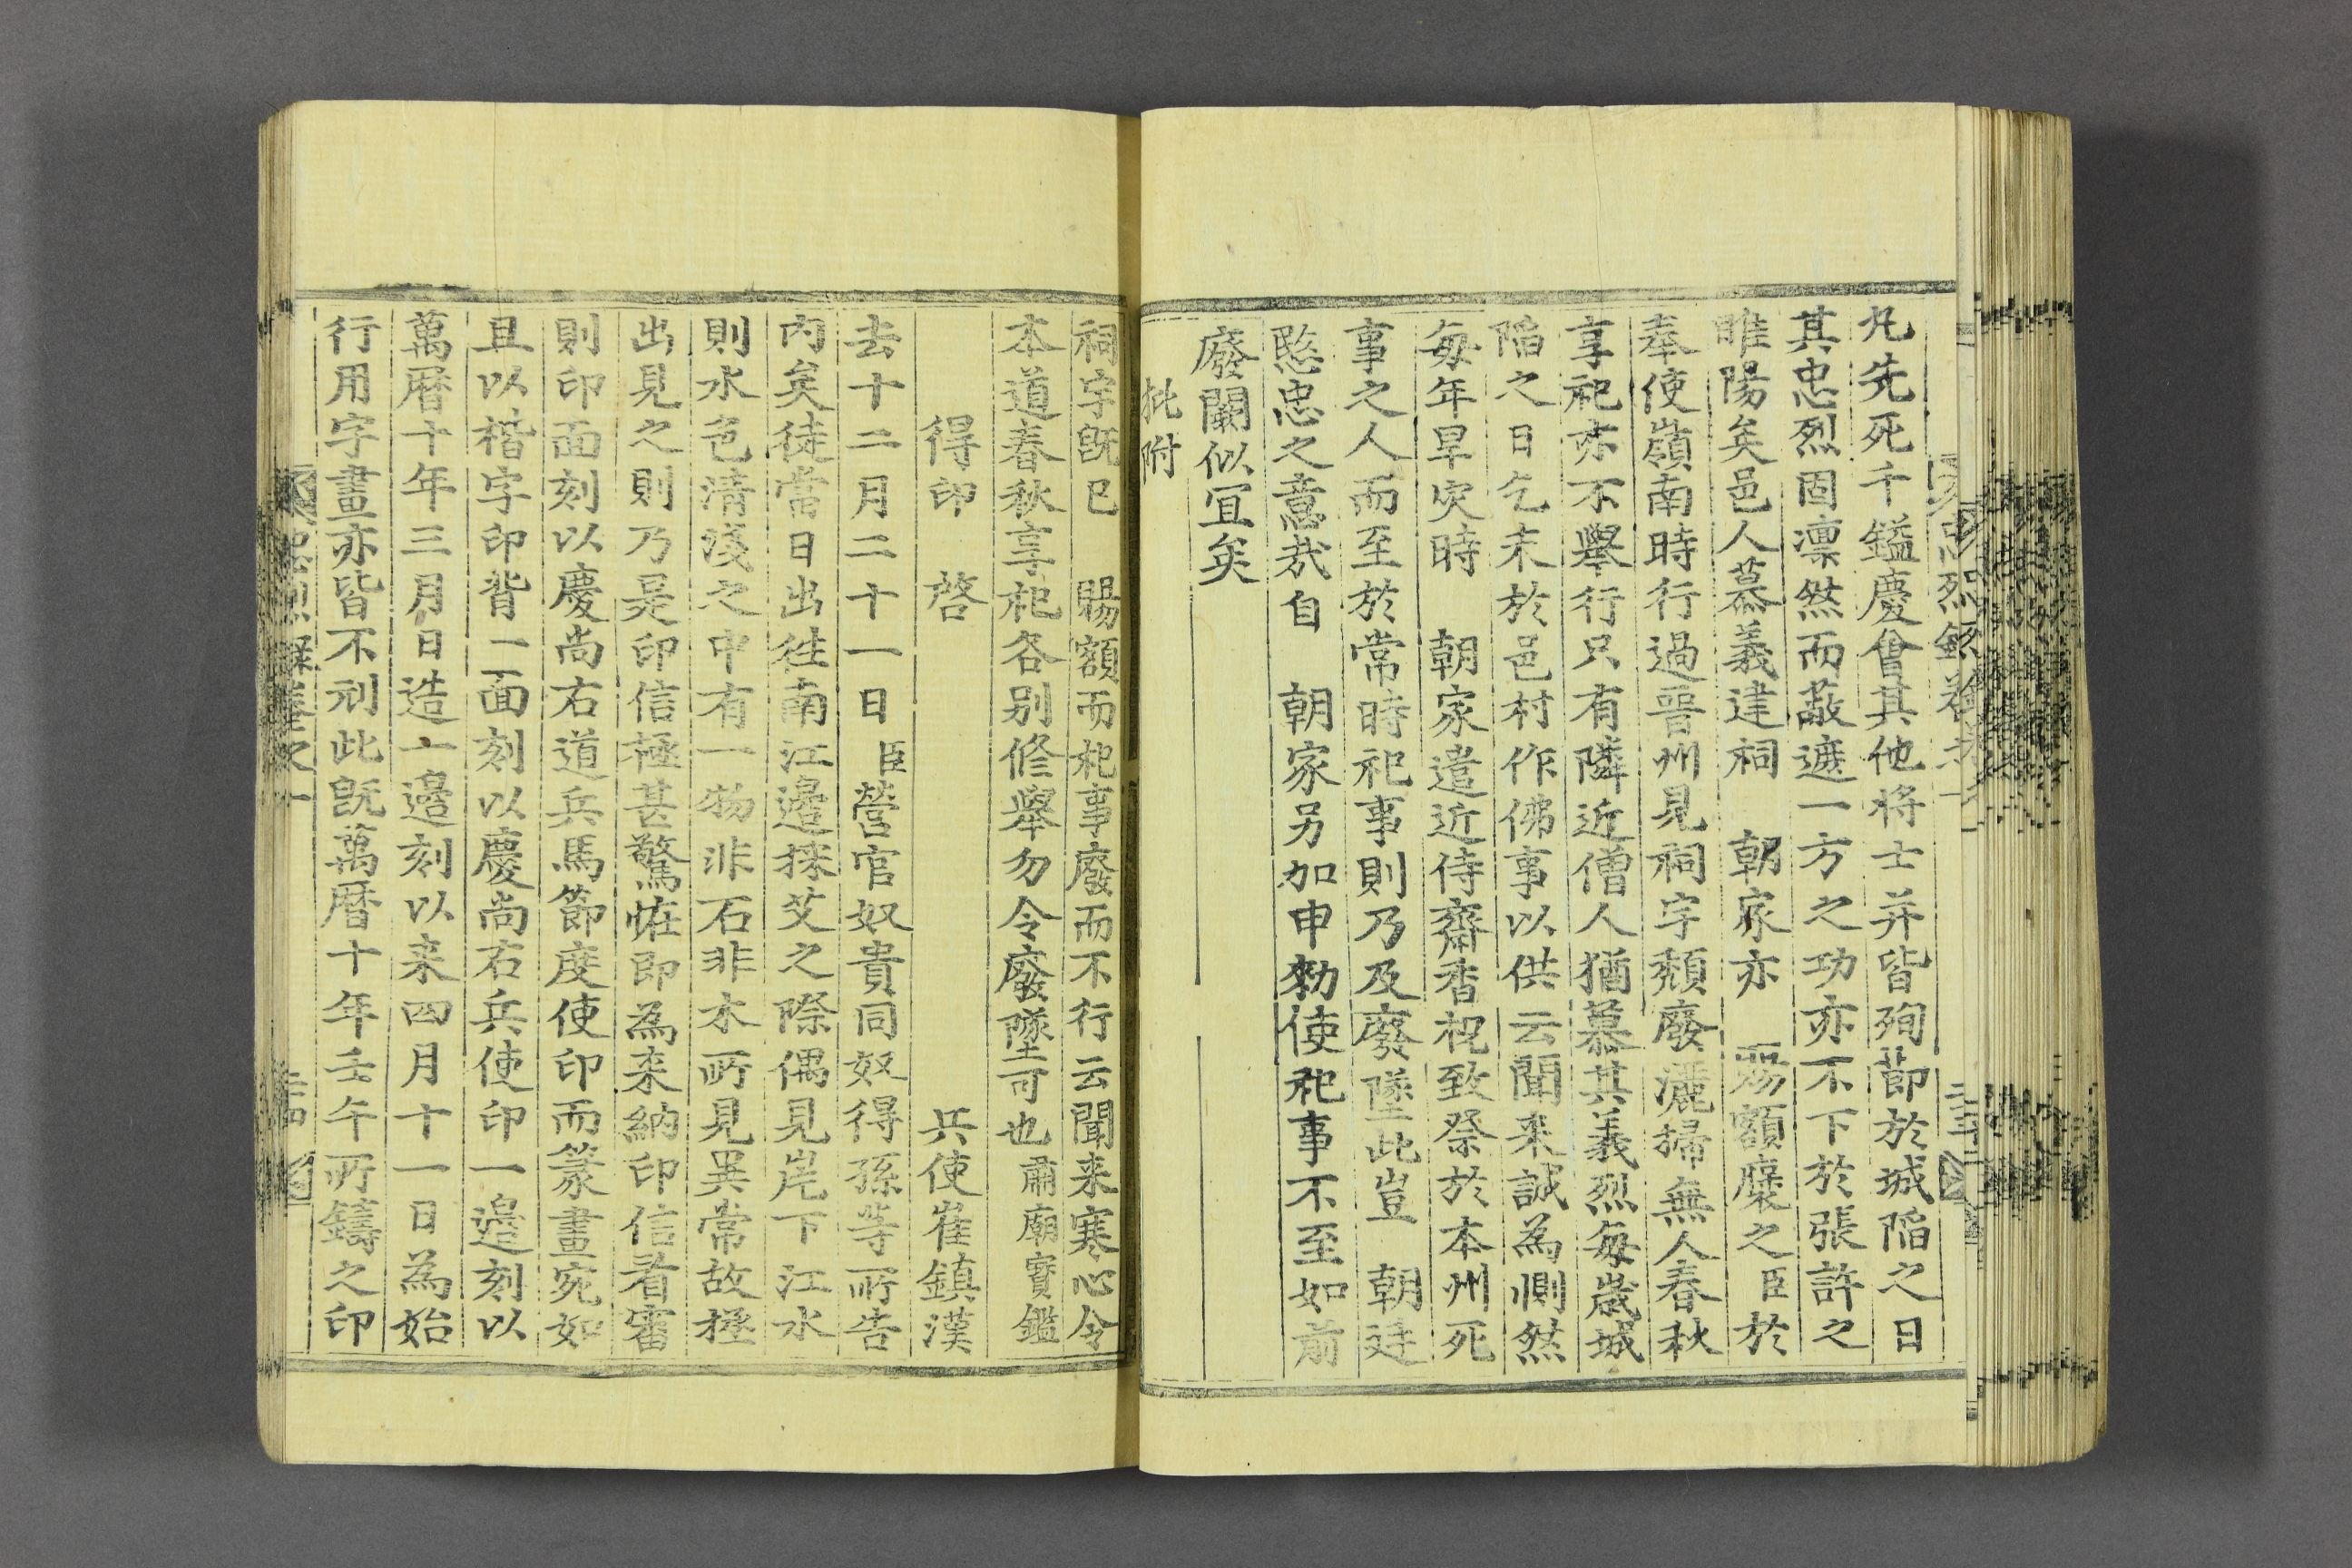 丸先死千鎰慶會其他将士并皆殉節於城陷之日
其忠烈固凛然而蔽遮一方之功亦不下於張許之
睢陽矣邑人慕義建祠 朝家亦 賜額褒之臣於
奉使嶺南時行過晋州見祠宇頽廢灑掃無人春秋
享祀亦不擧行只有隣近僧人猶慕其義烈每歳城
陷之日乞末於邑村作佛事以供云聞来誠為惻然
每年旱灾時 朝家遣近侍齎香祝致祭於本州死
事之人而至於常時祀事則乃及廢墜此豈 朝廷
愍忠之意㢤自 朝家另加申勑使祀事不至如前
廢闕似宜矣
批附
祠宇旣已 賜額而祀事廢而不行云聞来寒心令
本道春秋享祀各別修擧勿令廢墜可也肅廟寳鑑
得印 啓 兵使崔鎮漢
去十二月二十一日臣營官奴貴同奴得孫等所告
內矣徒當日出徃南江邉採艾之際偶見岸下江水
則水色淸淺之中有一物非石非木所見異常故拯
出見之則乃是印信極甚驚恠即為来納印信看審
則印面刻以慶尚右道兵馬節度使印而篆畫宛如
且以楷字印背一面刻以慶尚右兵使印一邉刻以
萬曆十年三月日造一邉刻以来四月十一日為始
行用字畫亦皆不刓此旣萬曆十年壬午所鑄之印
忠烈錄卷之一